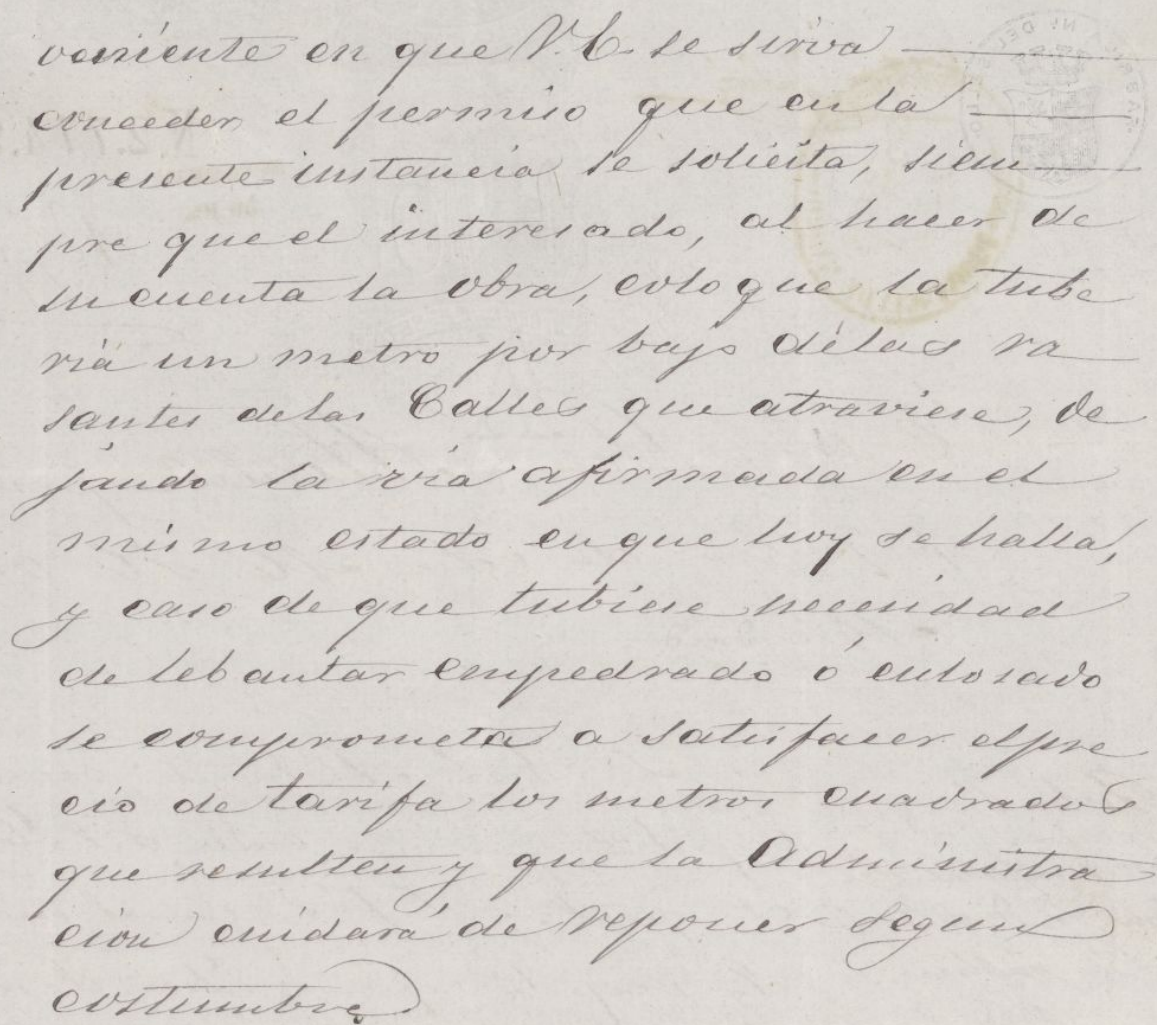 veniente en que V.E. se sirva
conceder el permiso que en la
presente instancia se solicita, siem
pre que el interesado, al hacer de
su cuenta la obra, coloque la tube
ria un metro por bajo délas ra
santes delas Calles que atraviese, de
jando la via afirmada en el
mismo estado en que hoy se halla,
y caso de que tubiese necesidad
de lebantar empedrado ó enlosado
se comprometa a satisfacer el pre
cio de tarifa los metros cuadrados
que resulten y que la Administra
cion cuidará de reponer segun
costumbre